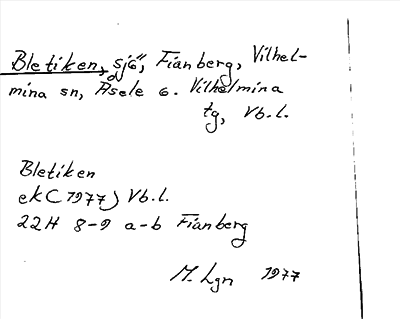 Bletiken, sjö, Fianberg, Vilhel-
mina sn, Åsele o. Vilhelmina
tg, Vb.l.
Bletiken
ek (1977) Vb.l.
22H 8-9 a-b Fianberg
M. Lgn 1977